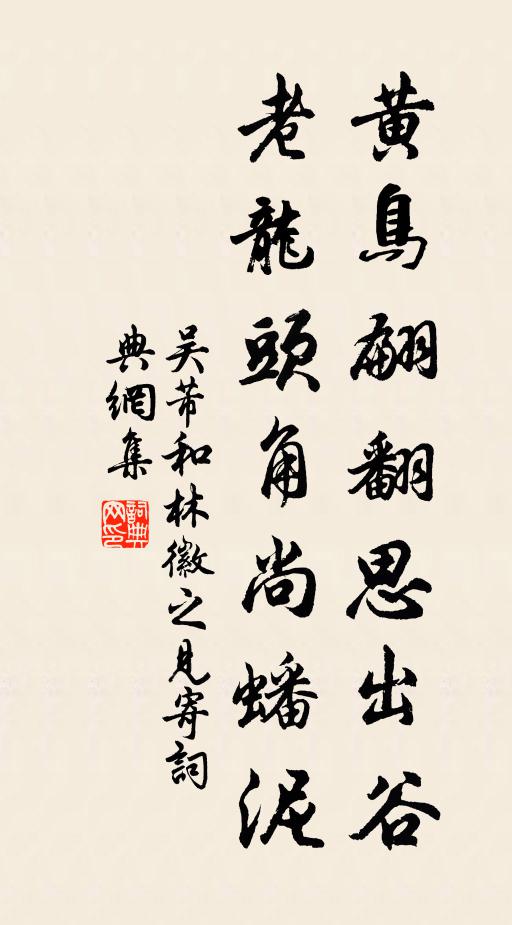 黄鳥翩翻思出谷
老龍頭角尚蟠泥
吳芾和林徽之見寄詞
典網集
詞典
网印